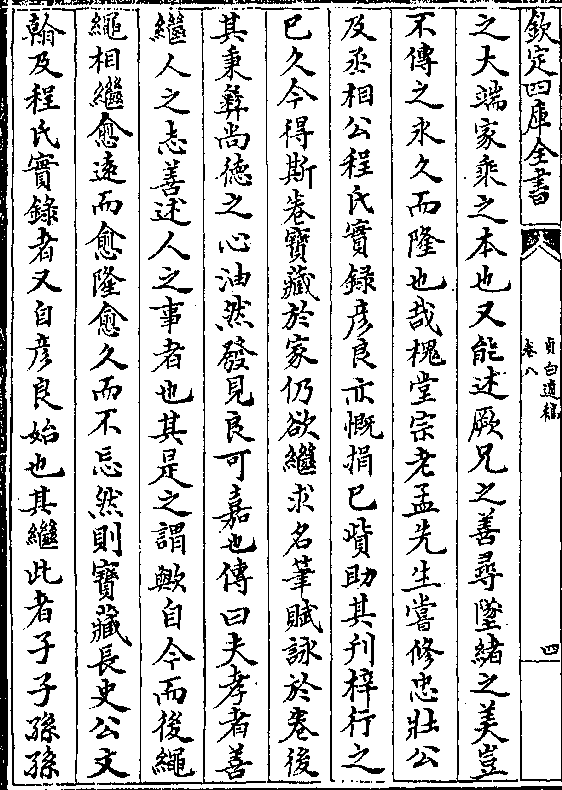 欽定四庫全書
貞白遺稿
卷八
四
之大端家乘之本也又能述厥兄之善尋墜緒之美豈
不傳之永久而隆也哉槐堂宗老孟先生嘗修忠壯公
及丞相公程氏實録彦良亦慨捐已貲助其刋梓行之
已久今得斯卷寶藏於家仍欲繼求名筆賦詠於卷後
其秉彝尚德之心油然發見良可嘉也傳曰夫孝者善
繼人之志善述人之事者也其是之謂歟自今而後繩
繩相繼愈遠而愈隆愈久而不忘然則寶藏長史公文
翰及程氏實錄者又自彦良始也其繼此者子子孫孫